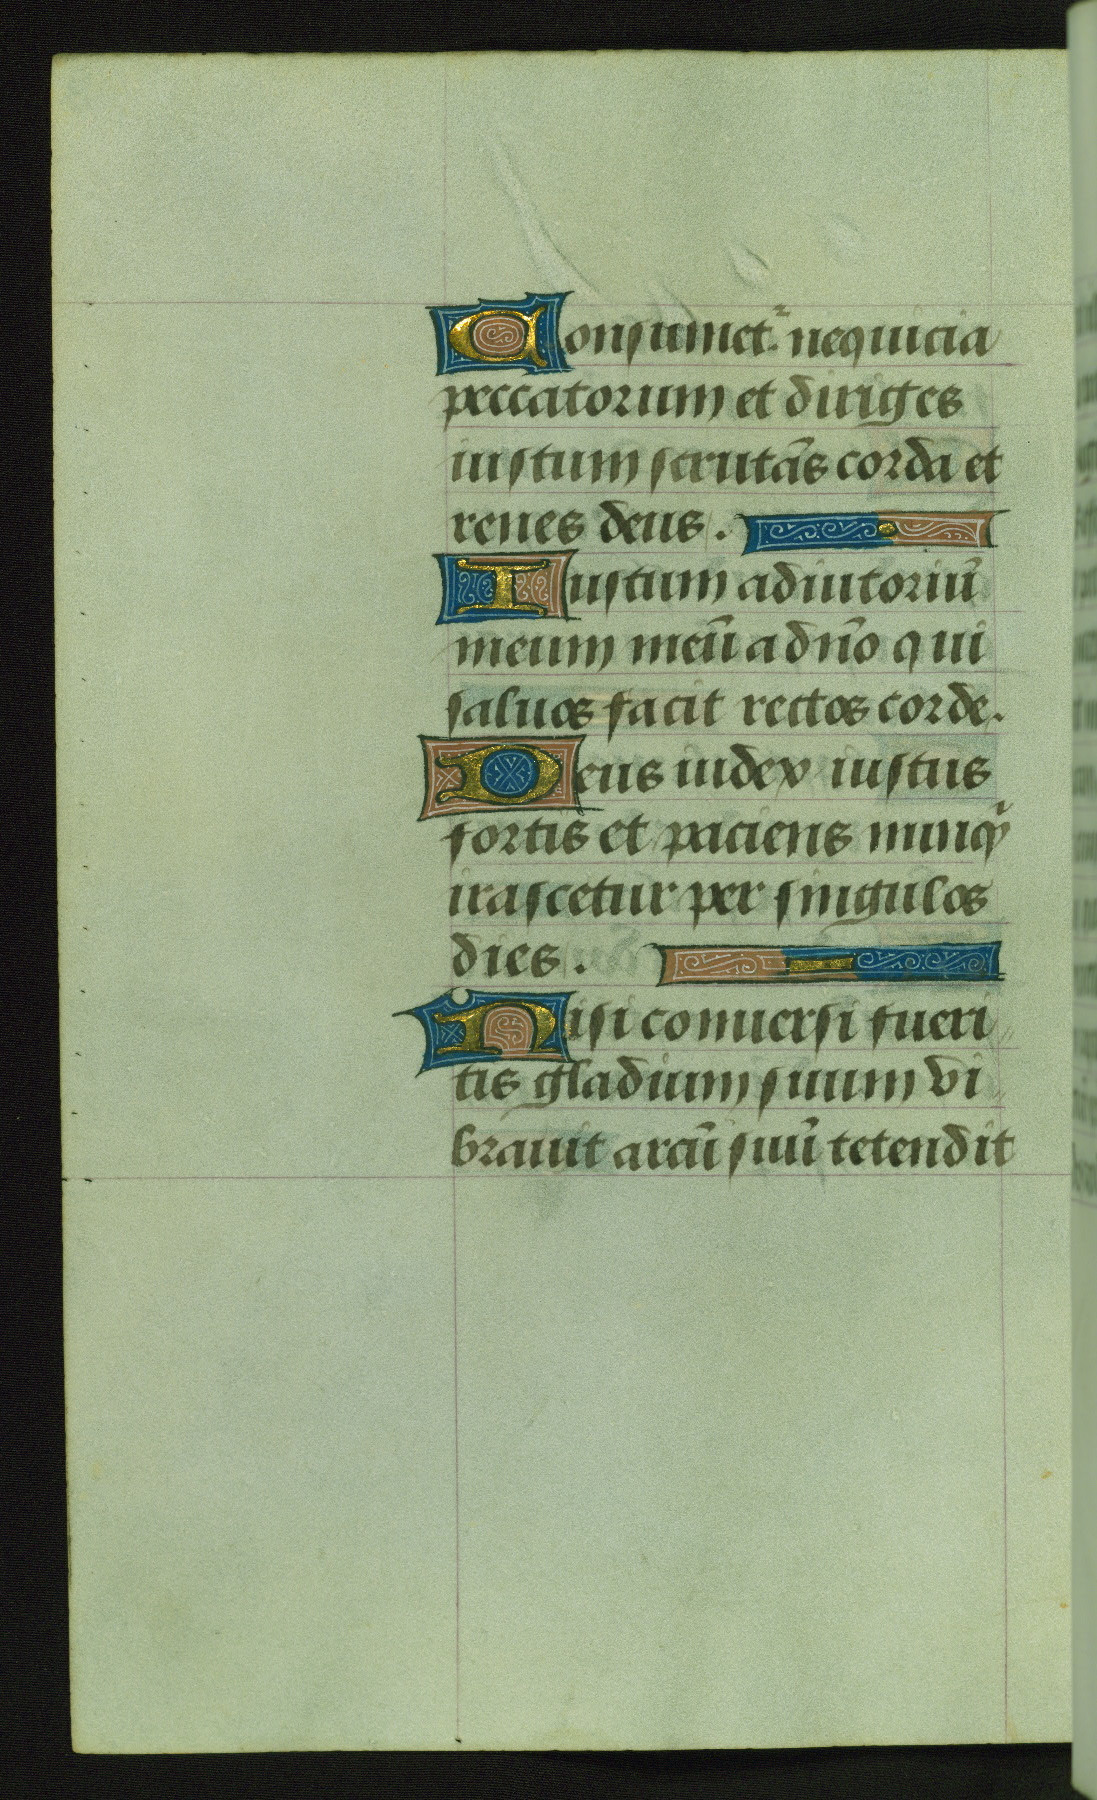 Consumet᷑ nequicia
peccatorum et diriges
iustum scrutãs corda et
renes deus.
Iustum adiutoriũ
meum meũ a dño qui
saluos facit rectos corde.
Deus iudex iustus
fortis et paciens nunq̃
irascetur per singulos
dies.
Nisi conuersi fueri
tis gladium suum vi
brauit arcũ suũ tetendit